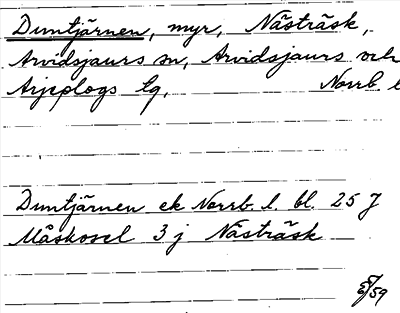 Dumtjärnen, myr, Nästräsk,
Arvidsjaurs sn, Arvidsjaurs och
Arjeplogs tg, Norrb l
Dumtjärnen ek Norrb. l. bl. 25 J
Måskosel 3 j Nästräsk
59